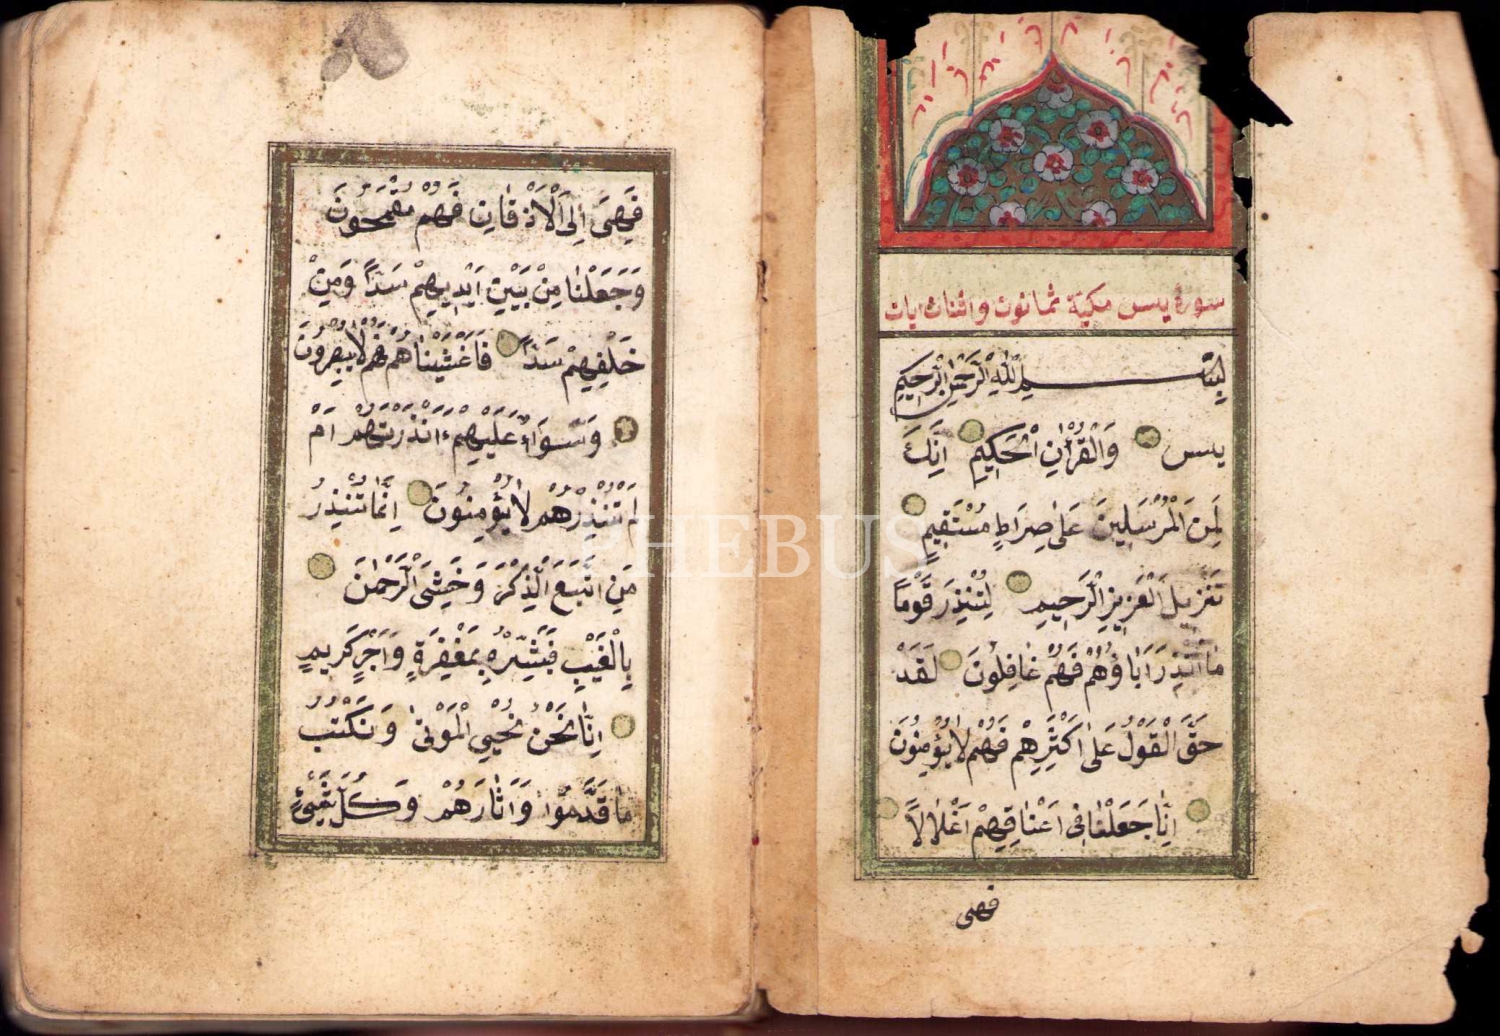 سورة يس مكية ثمانون واثنات ايات
بِسْمِ اللّٰهِ الرَّحْمٰنِ الرَّحِيمِ
يس وَالْقُرْاٰنِ الْحَكِيمِ اِنَّكَ
لَمِنَ الْمُرْسَلِينَ عَلٰى صِرَاطٍ مُسْتَقِيمٍ
تَنْزِيلَ الْعَزِيزِ الرَّحِيمِ لِتُنْذِرَ قَوْمًا
مَا اُنْذِرَ اٰبَاؤُهُمْ فَهُمْ غَافِلُونَ لَقَدْ
حَقَّ الْقَوْلُ عَلٰى اَكْثَرِهِمْ فَهُمْ لَا يُؤْمِنُونَ
اِنَّا جَعَلْنَا فِى اَعْنَاقِهِمْ اَغْلَالًا
فهى
فَهِىَ اِلَى الْاَذْقَانِ فَهُمْ مُقْمَحُونَ
وَجَعَلْنَا مِنْ بَيْنِ اَيْدِيهِمْ سَدًّا وَمِنْ
خَلْفِهِمْ سَدًّا فَاَغْشَيْنَاهُمْ فَهُمْ لَا يُبْصِرُونَ
وَسَوَاءٌ عَلَيْهِمْ ءَاَنْذَرْتَهُمْ اَمْ
لَمْ تُنْذِرْهُمْ لَا يُؤْمِنُونَ اِنَّمَا تُنْذِرُ
مَنِ اتَّبَعَ الذِّكْرَ وَخَشِىَ الرَّحْمٰنَ
بِالْغَيْبِ فَبَشِّرْهُ بِمَغْفِرَةٍ وَاَجْرٍ كَرِيمٍ
اِنَّا نَحْنُ نُحْيِي الْمَوْتٰى وَنَكْتُبُ
مَا قَدَّمُوا وَاٰثَارَهُمْ وَكُلَّ شَيْءٍ
PHEBUS